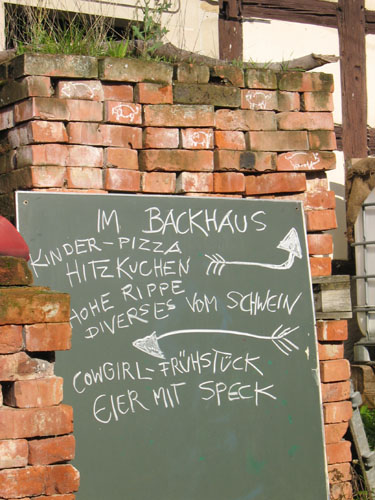 IM BACKHAUS
KINDER-PIZZA
HITZKUCHEN
HOHE RIPPE
DIVERSES VOM SCHWEIN
COWGIRL-FRÜHSTÜCK
EIER MIT SPECK